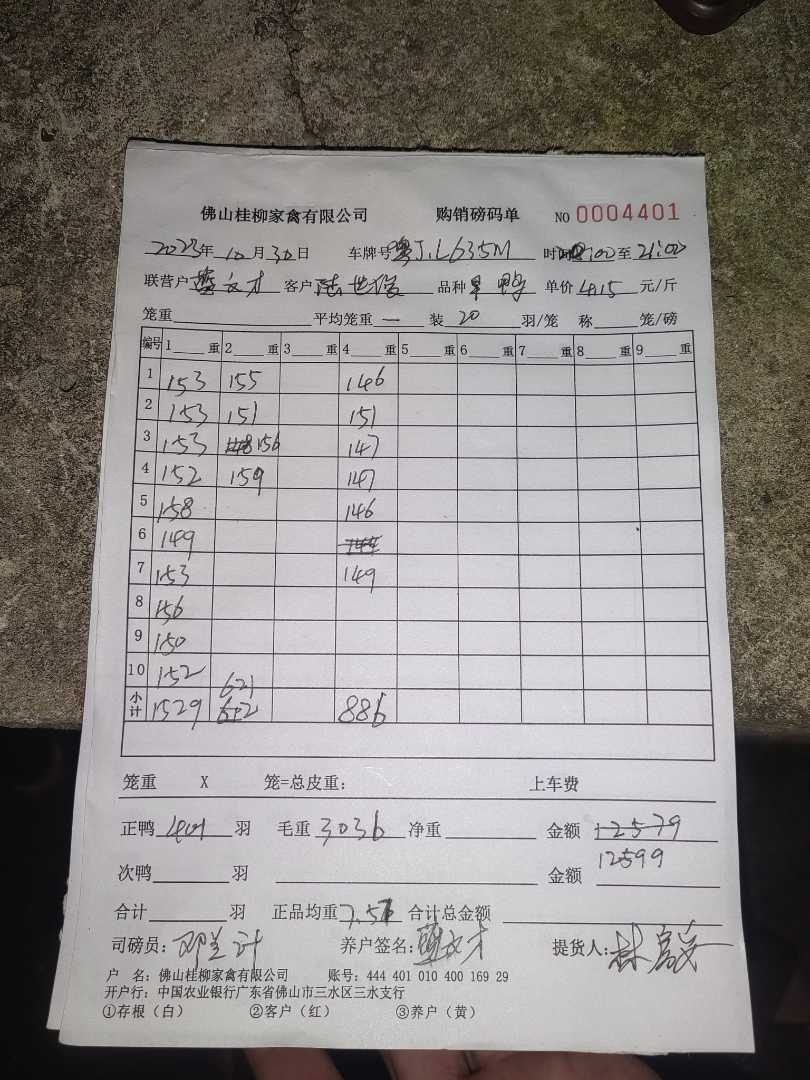 佛山桂柳家禽有限公司 购销磅码单 NO 0004401
2023年10月30日 车牌号粤J.L635M 时间:00至21:00
联营户文才 客户陆世 品种鸭 单价4.15元/斤
笼重 平均笼重— 装20羽/笼 称 笼/磅
编号 1 重 2 重 3 重 4 重 5 重 6 重 7 重 8 重 9 重
1 153 155 146
2 153 151 151
3 153 148 156 147
4 152 159 147
5 158 146
6 149
7 153 149
8 156
9 150
10 152 621
小计 1529 612 886
笼重 X 笼=总皮重: 上车费
正鸭401羽 毛重3036 净重 金额12579
12599
次鸭 羽 金额
合计 羽 正品均重7.57 合计总金额
司磅员: 养户签名:文才 提货人:林
户 名: 佛山桂柳家禽有限公司 账号: 444 401 010 400 169 29
开户行: 中国农业银行广东省佛山市三水区三水支行
①存根(白) ②客户(红) ③养户(黄)